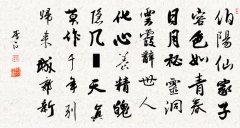 伯陽仙家子
容色如青春
日月秘靈洞
雲霞辭世人
化心養精魄
隱几窅天真
莫作千年別
歸來城郭新